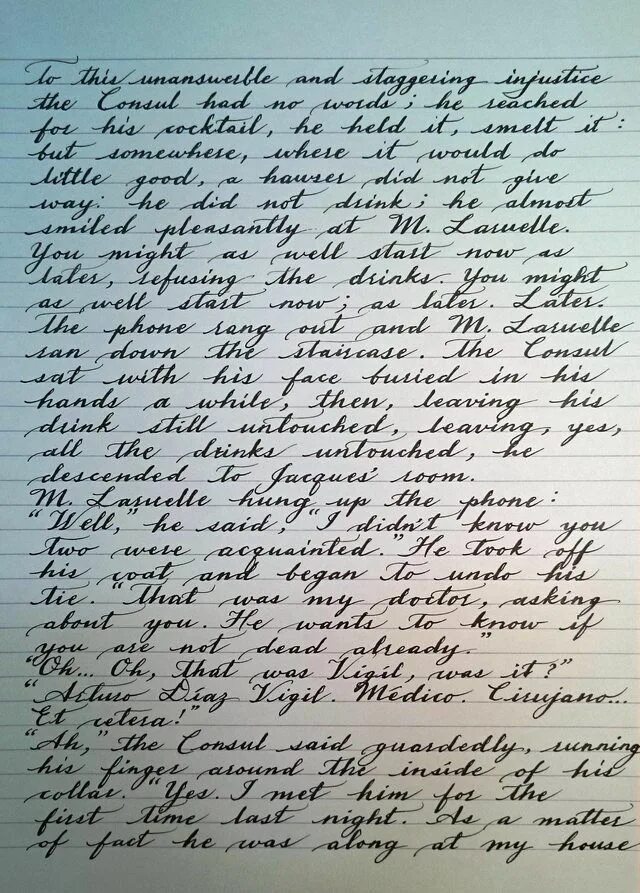 To this unanswerble and staggering injustice
the Consul had no words; he reached
for his cocktail, he held it, smelt it:
but somewhere, where it would do
little good, a hawser did not give
way: he did not drink; he almost
smiled pleasantly at M. Laruelle.
You might as well start now as
later, refusing the drinks. You might
as well start now; as later. Later.
The phone rang out and M. Laruelle
ran down the staircase. The Consul
sat with his face buried in his
hands a while, then, leaving his
drink still untouched, leaving, yes,
all the drinks untouched, he
descended to Jacques' room.
M. Laruelle hung up the phone:
"Well," he said, "I didn't know you
two were acquainted." He took off
his coat and began to undo his
tie. "That was my doctor, asking
about you. He wants to know if
you are not dead already."
"Oh... Oh, that was Vigil, was it?"
"Arturo Díaz Vigil. Médico. Cirujano...
Et cetera!"
"Ah," the Consul said guardedly, running
his finger around the inside of his
collar. "Yes. I met him for the
first time last night. As a matter
of fact he was along at my house